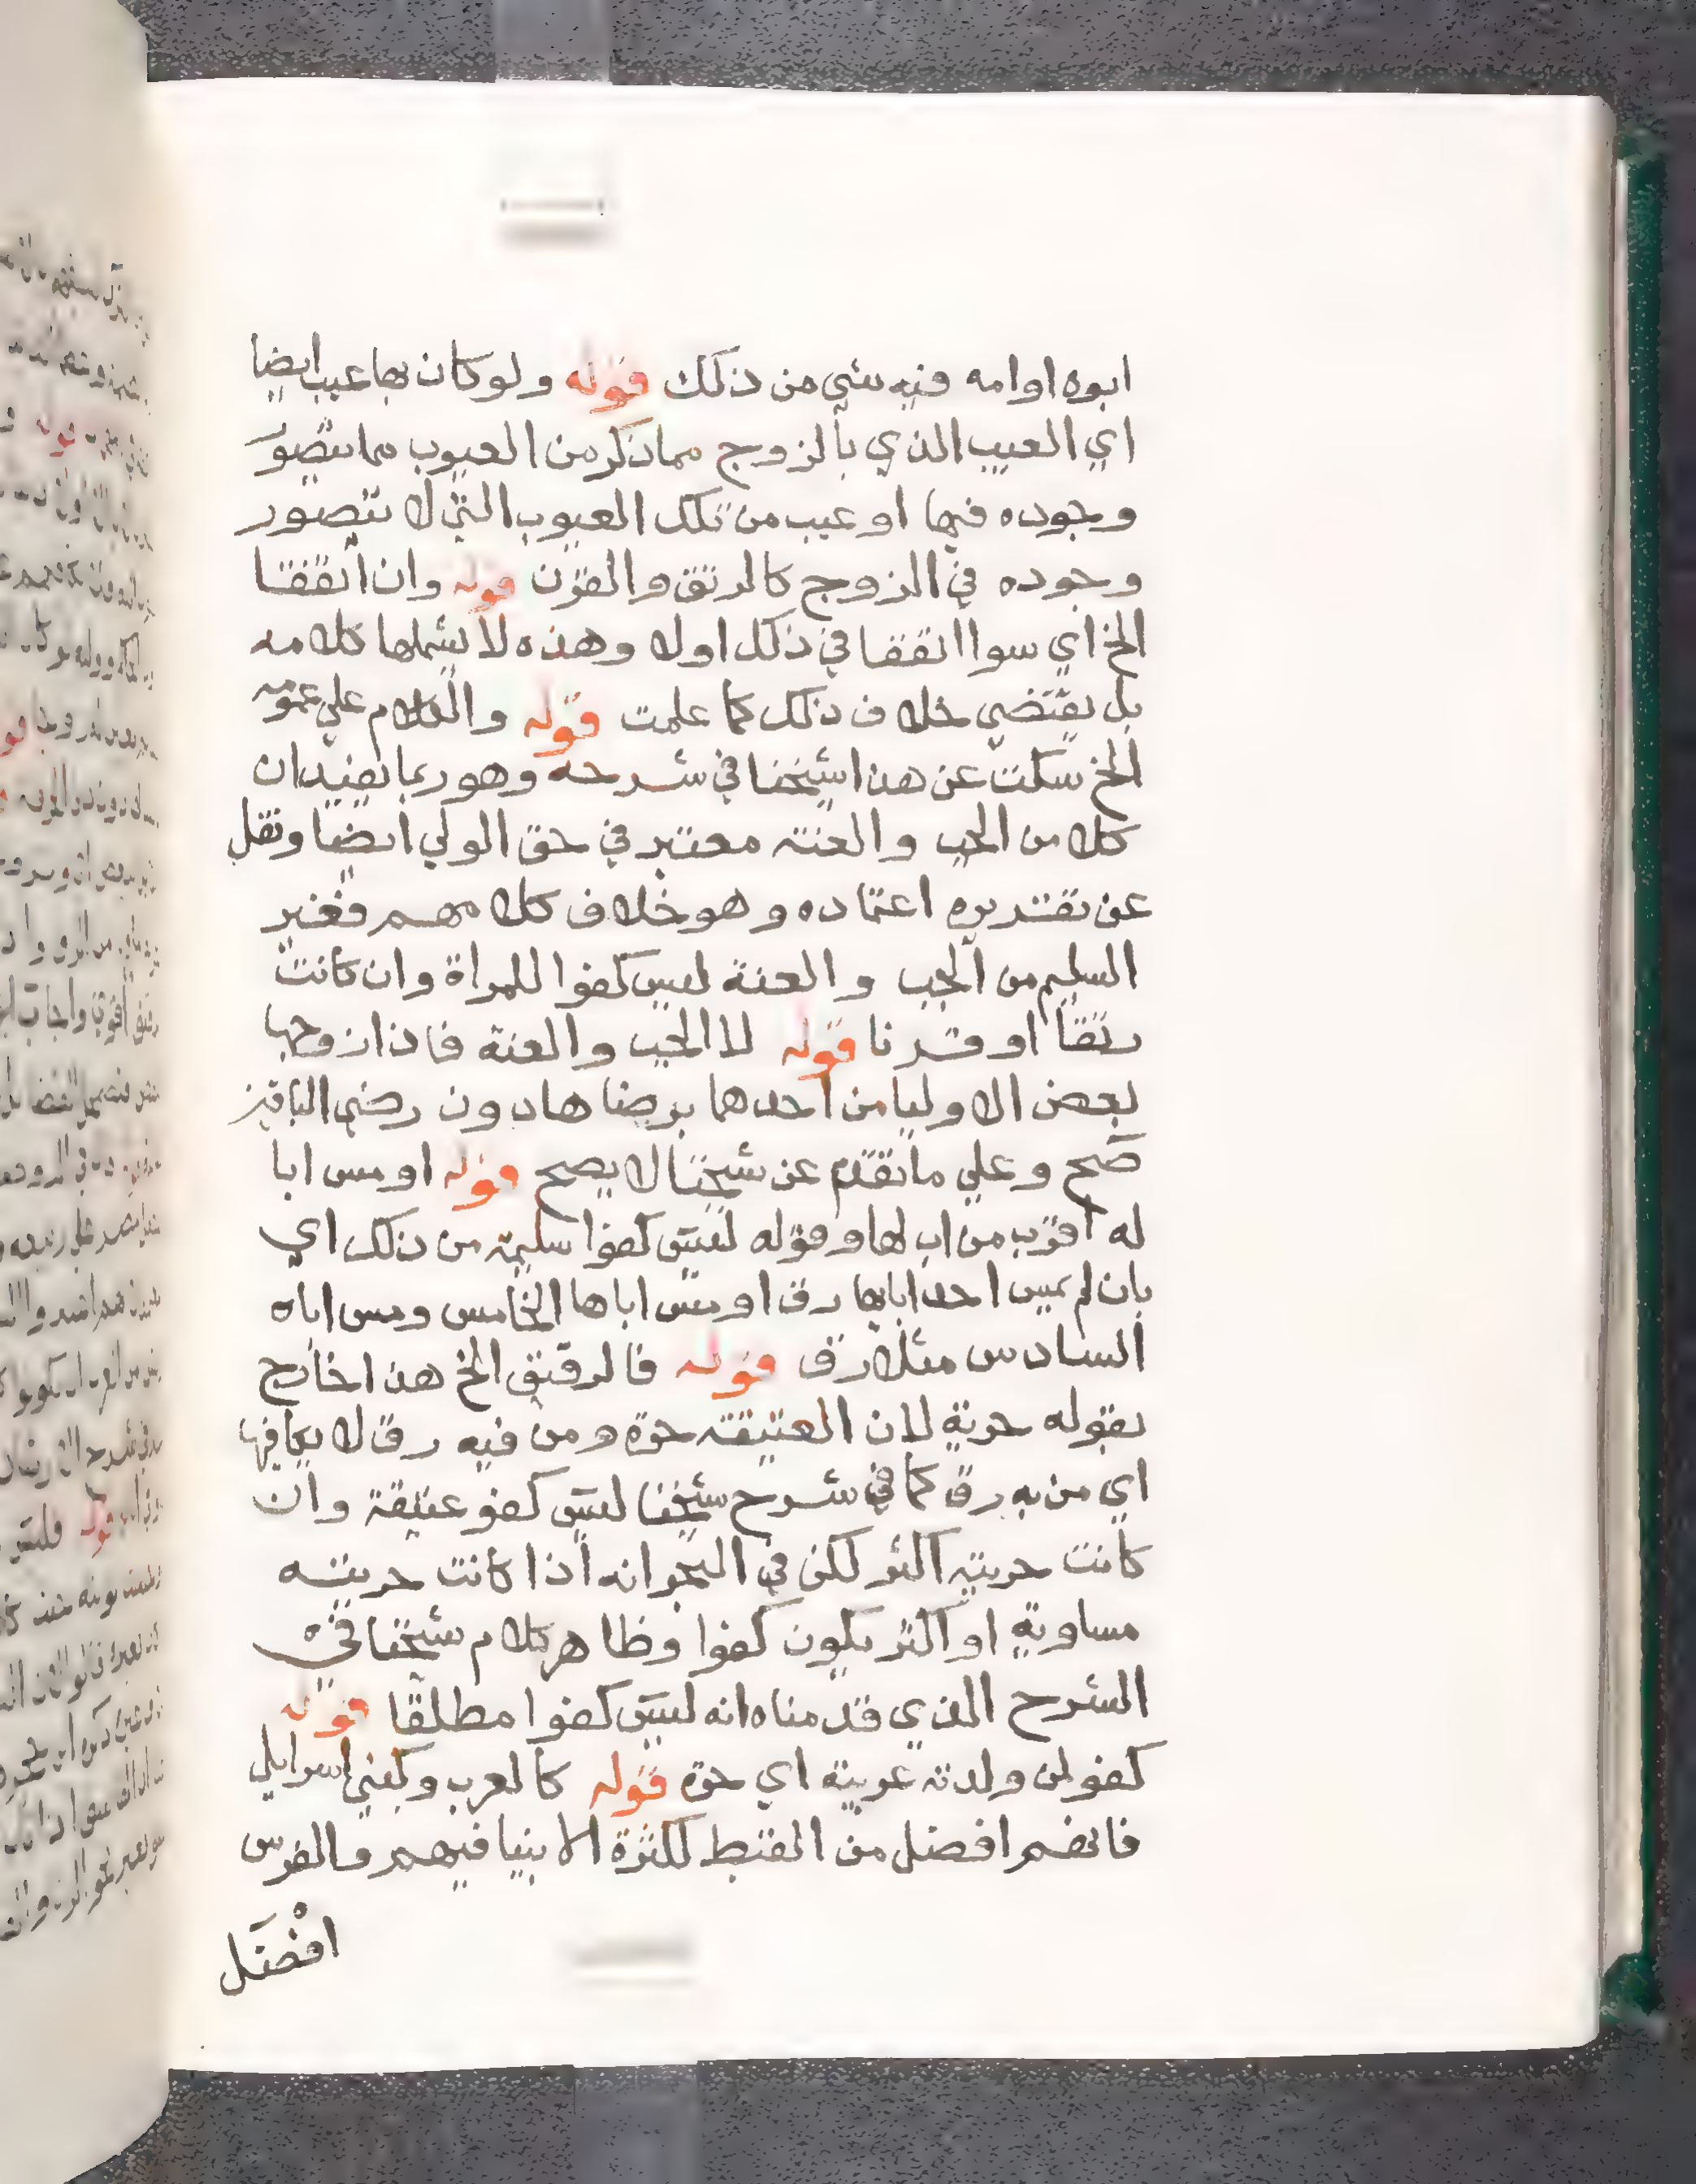 ابوه او امه فيه شي من ذلك قوله ولو كان بها عيب ايضا
اي العيب الذي بالزوج مما ذكر من العيوب مما يتصور
وجوده فيها او عيب من تلك العيوب التي لا يتصور
وجوده في الزوج كالرتق والقرن قوله وان اتفقا
الخ اي سوا اتفقا في ذلك اولا وهذه لا يشملها كلامه
بل يقتضي خلاف ذلك كما علمت قوله والكلام علي عمومه
الخ سكت عن هذا شيخنا في شرحه وهو ربما يفيد ان
كلا من الجب والعنة معتبر في حق الولي ايضا ونقل
عن تقديره اعتماده وهو خلاف كلامهم فغير
السليم من الجب والعنة ليس كفوا للمراة وان كانت
رتقا او قرنا قوله لا الجب والعنة فاذا زوجها
بعض الاوليا من احدهما برضاها دون رضي الباقين
صح وعلي ما تقدم عن شيخنا لا يصح قوله او مس ابا
له اقرب من اب لها وقوله ليس كفوا سليمة من ذلك اي
بان لم يمس احد ابايها رق او مس اباها الخامس ومس اباه
السادس مثلا رق قوله فالرقيق الخ هذا خارج
بقوله حرية لان العتيقة حرة ومن فيه رق لا يكافيها
اي من به رق كما في شرح شيخنا ليس كفو عتيقة وان
كانت حريته اكثر لكن في البحر انه اذا كانت حريته
مساوية او اكثر يكون كفوا وظاهر كلام شيخنا في
الشرح الذي قدمناه انه ليس كفوا مطلقا قوله
كفو لمن ولدته عربية اي حرة قوله كالعرب وكبني اسرايلي
فانهم افضل من القبط لكثرة الانبيا فيهم والفرس
افضل